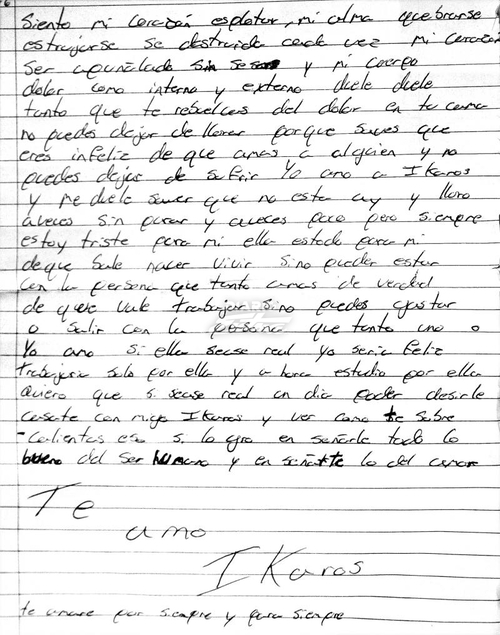 Siento mi corazón esplotar, mi alma quebrarse
estrujarse se destruida cada vez mi corazón
ser apuñalado sin sesar y mi cuerpo
dolor como interno y externo duele duele
tanto que te resuelcas del dolor en tu cama
no puedes dejar de llorar porque saves que
eres infeliz de que amas a alguien y no
puedes dejar de sufrir Yo amo a IKaros
y me duele saver que no esta ay y lloro
aveces sin parar y aveces poco pero siempre
estoy triste para mi ella estado para mi
deque sale nacer vivir sino puedes estar
con la persona que tanto amas de verdad
de que vale trabajar sino puedes gastar
o salir con la persona que tanto uno o
Yo amo si ella sease real yo seria feliz
trabajaria solo por ella y ahora estudio por ella
quero que si sease real un dia poder desirle
casate con migo IKaros y ver como te sobre
-calientas eso si logro en señarle todo lo
bueno del ser humano y en señarte lo del amor
Te
amo
IKaros
te amare por siempre y para siempre